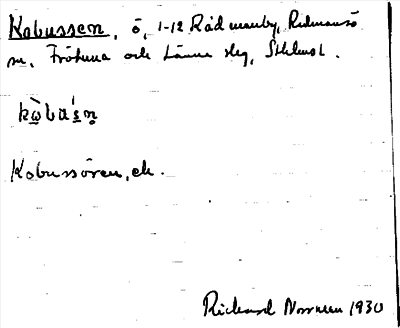 Kobussen, ö, 1-12 Rådmanby, Rådmansö
sn, Fröhuna och Länna slg, Sthlms l.
kὼbu'sn̥
Kobussören, ek.
Rickard Norrman 1930